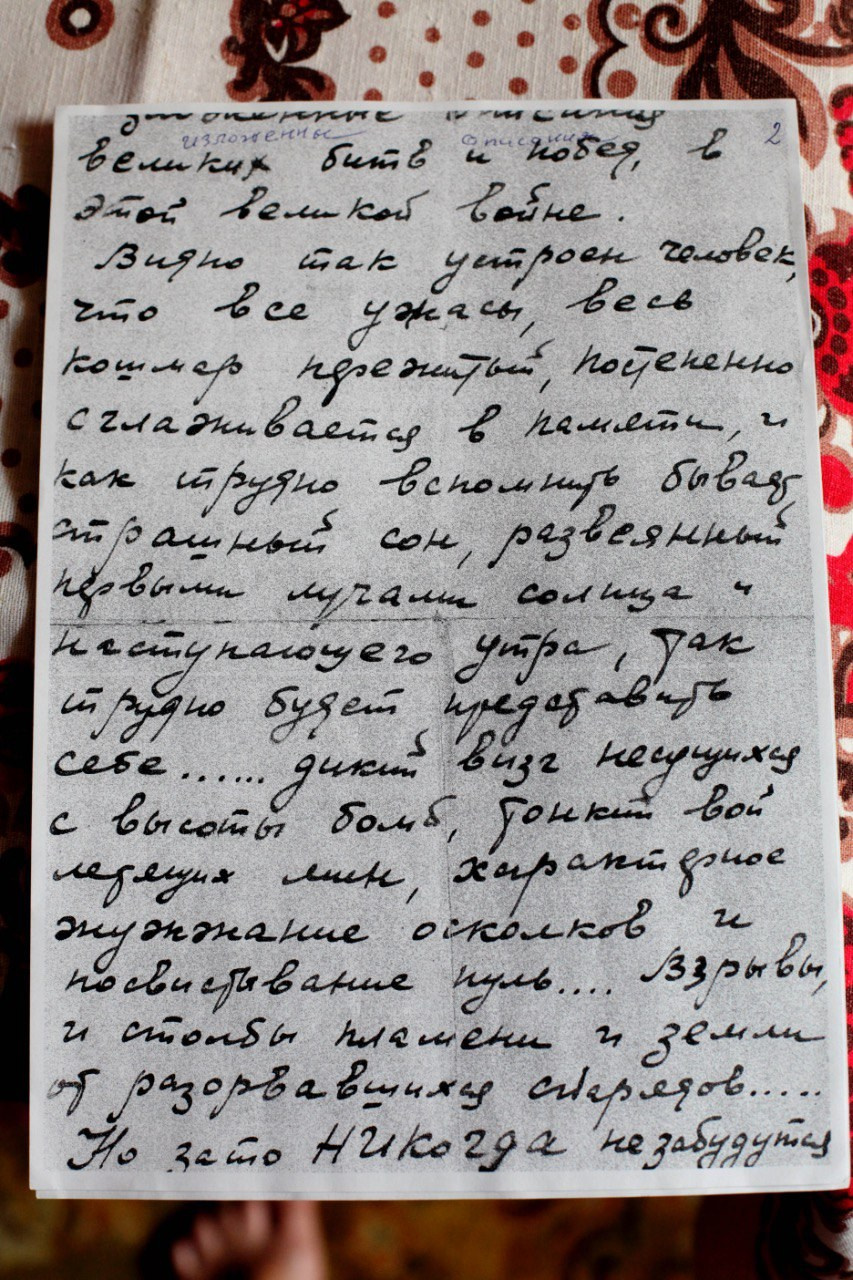 изложенные описания
изложенны описания 2
великих битв и побед, в
этой великой войне.
Видно так устроен человек,
что все ужасы, весь
кошмар пережитый, постепенно
сглаживается в памяти, и
как трудно вспомнить бывает
страшный сон, развеянный
первыми лучами солнца и
наступающего утра, так
трудно будет представить
себе...... дикий визг несущихся
с высоты бомб, тонкий вой
летящих мин, характерное
жужжание осколков и
посвистывание пуль.... Взрывы,
и столбы пламени и земли
от разорвавшихся снарядов.....
Но зато НИкогда незабудутся